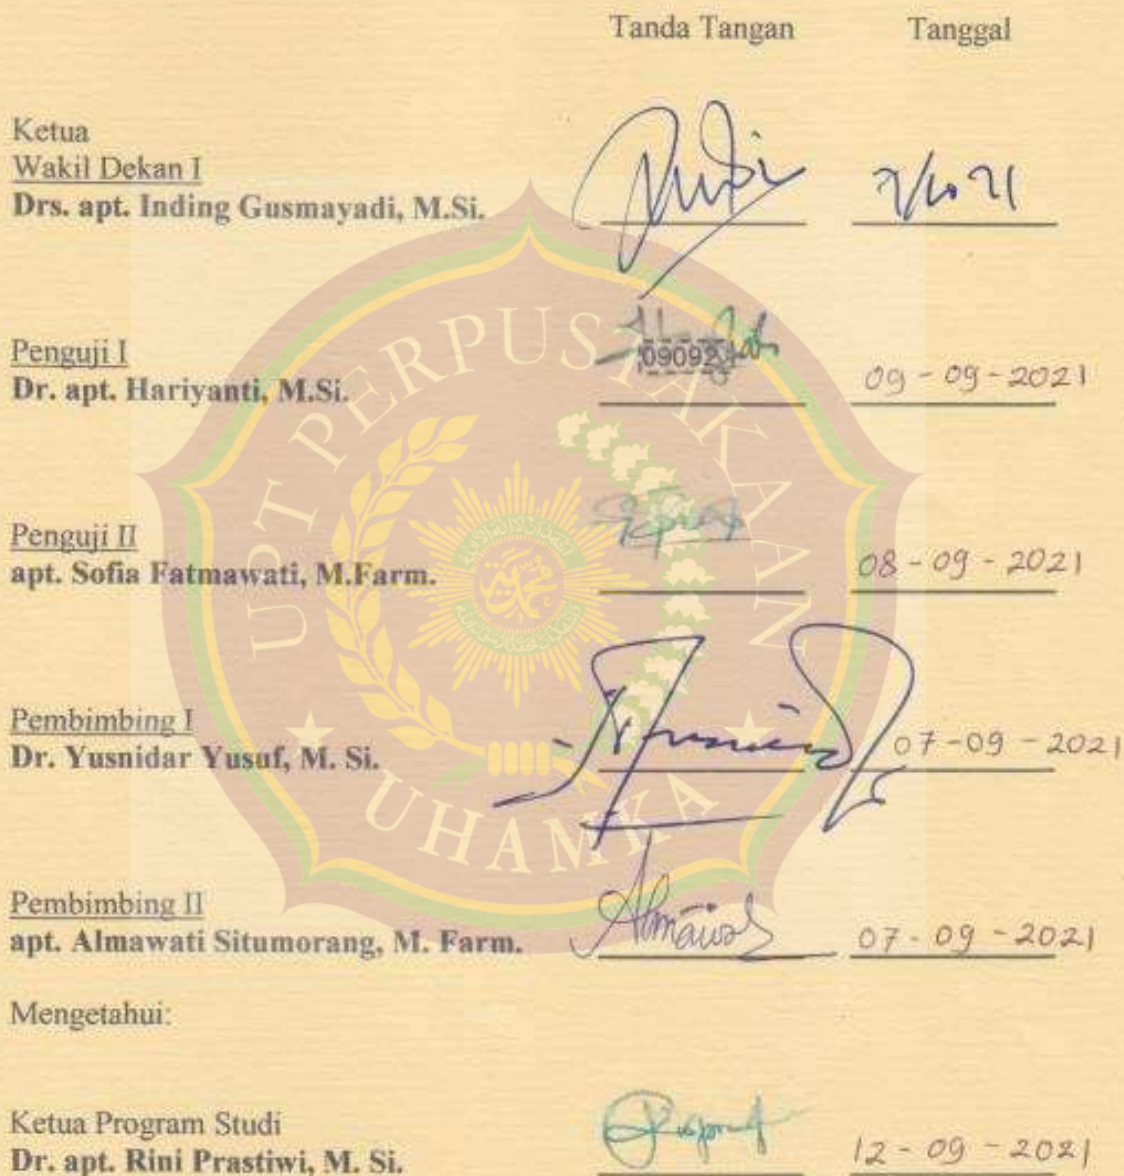 Tanda Tangan Tanggal
Ketua
Wakil Dekan I
Drs. apt. Inding Gusmayadi, M.Si.
7/10 21
Penguji I
Dr. apt. Hariyanti, M.Si.
09092
09-09-2021
Penguji II
apt. Sofia Fatmawati, M.Farm.
08-09-2021
Pembimbing I
Dr. Yusnidar Yusuf, M. Si.
07-09-2021
Pembimbing II
apt. Almawati Situmorang, M. Farm.
07-09-2021
Mengetahui:
Ketua Program Studi
Dr. apt. Rini Prastiwi, M. Si.
12-09-2021
UPT PERPUSTAKAAN
UHAMKA